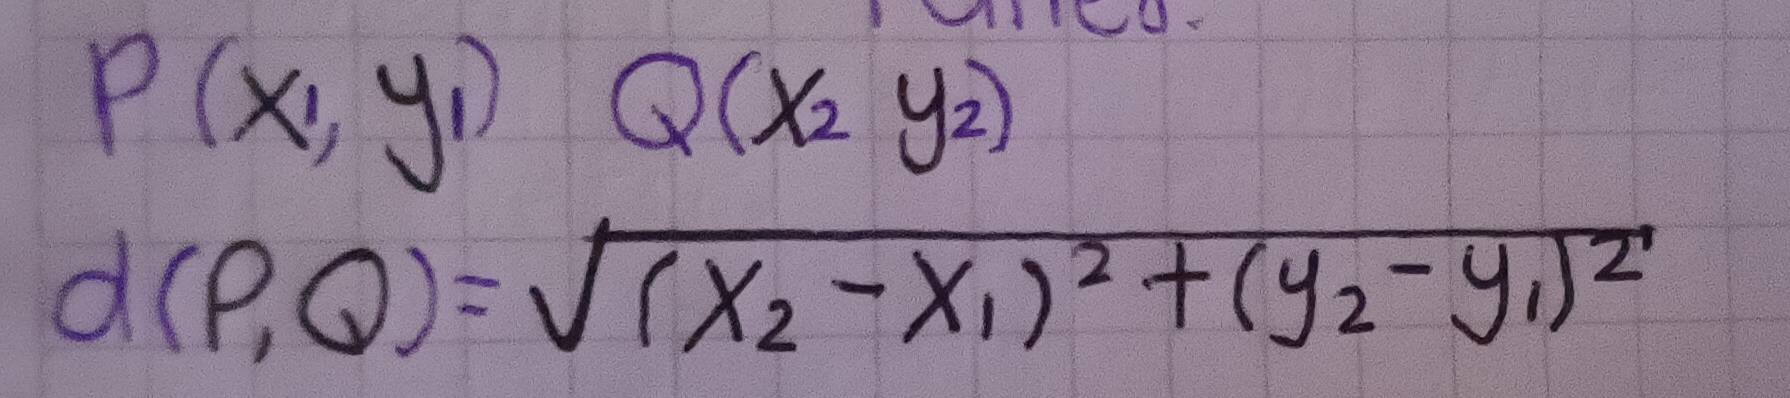 P(x₁, y₁) Q(x₂ y₂)
d(P,Q)=√(x₂-x₁)²+(y₂-y₁)²